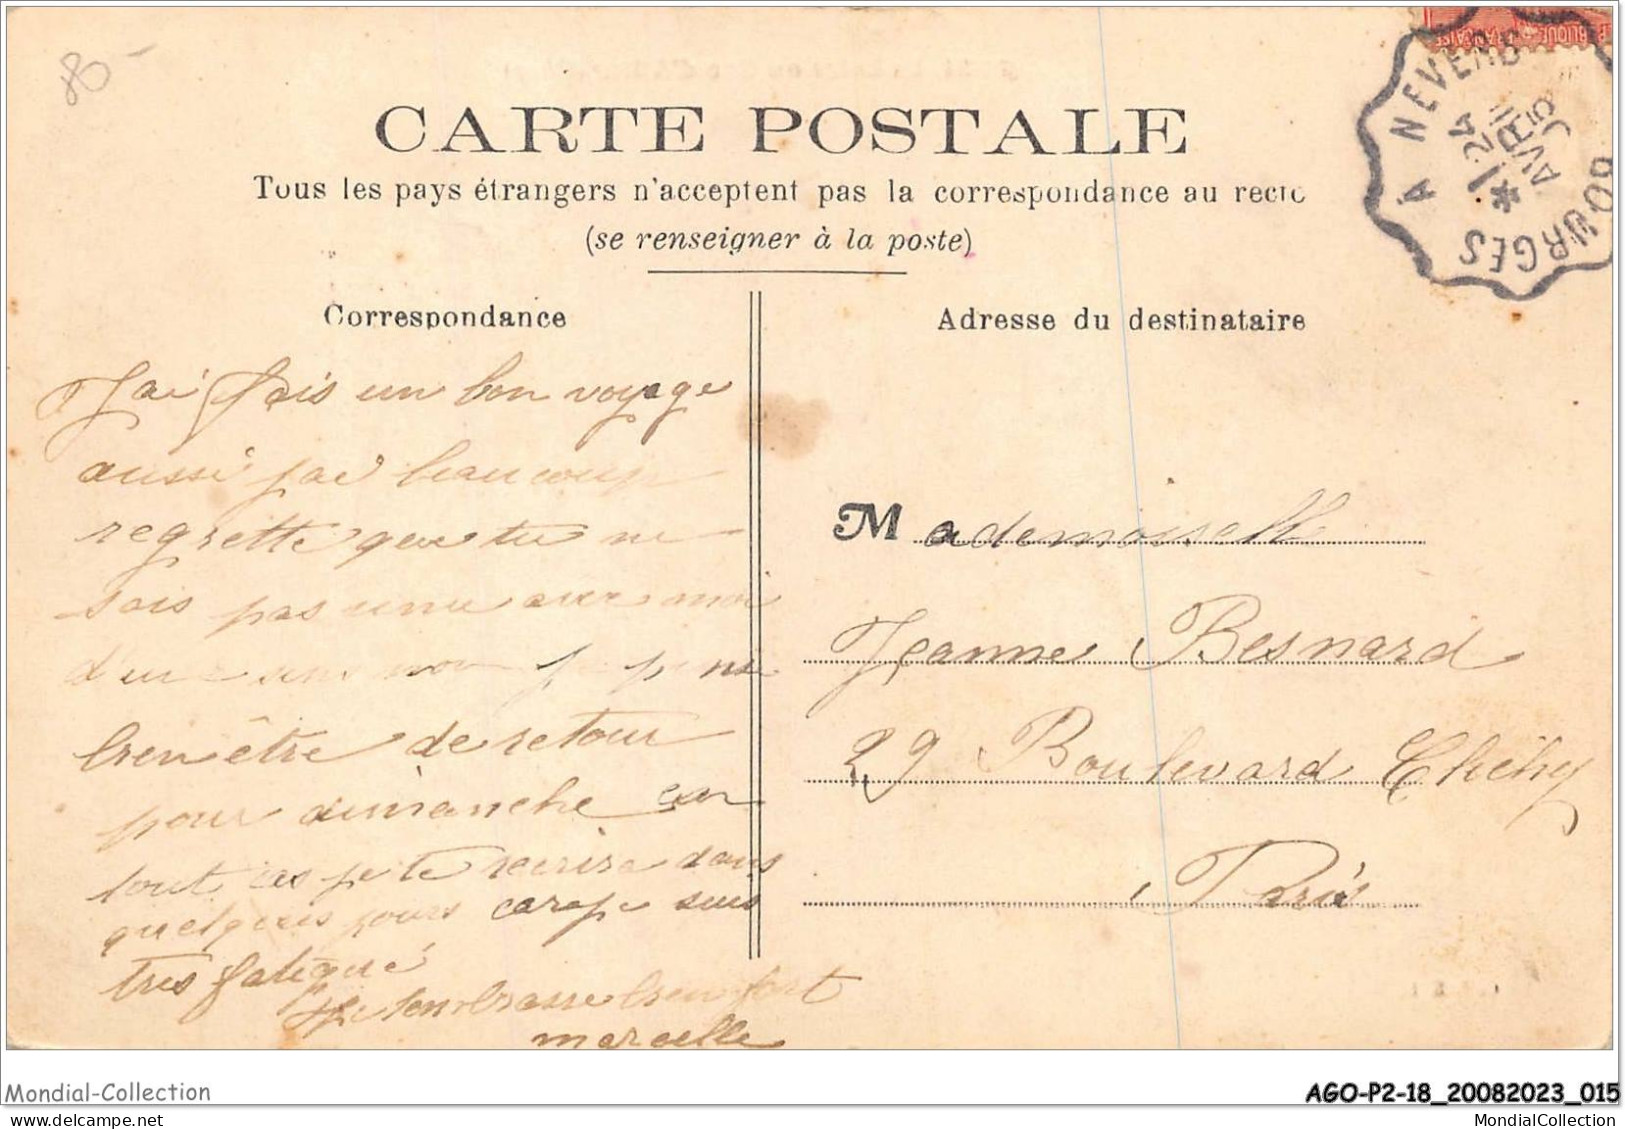 80-
CARTE POSTALE
Tous les pays étrangers n'acceptent pas la correspondance au recto
(se renseigner à la poste)
BOURGES A NEVERS
Correspondance
J'ai fais un bon voyage
aussi j'ai beaucoup
regrette que tu ne
sois pas venu avec moi
bien être de retour
pour dimanche en
tout cas je te recrire dans
quelques jours car je suis
très fatigué
Je t'embrasse bien fort
marcelle
Adresse du destinataire
Mademoiselle
Jeanne Besnard
29 Boulevard Clichy
Paris
Mondial-Collection
AGO-P2-18_20082023_015
delcampe.net
MondialCollection